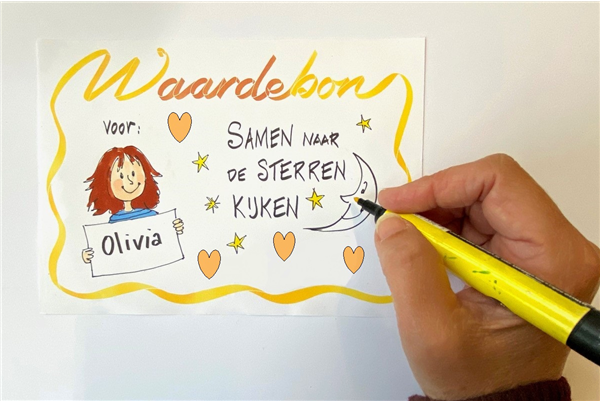 Waardebon
voor:
SAMEN NAAR
DE STERREN
KIJKEN
Olivia